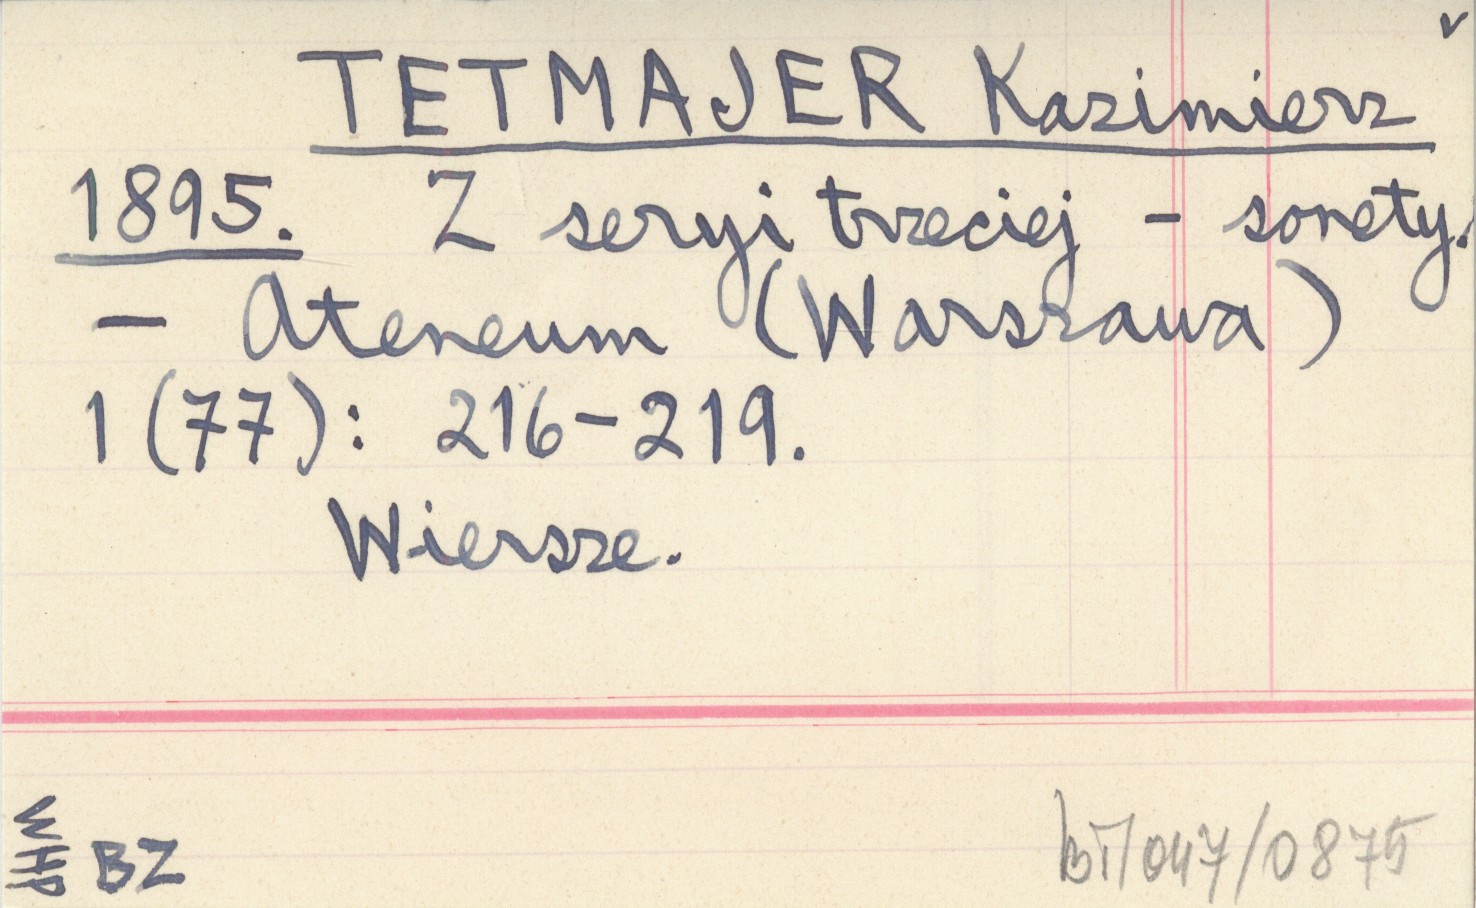 v
TETMAJER Kazimierz
1895. Z seryi trzeciej - sonety.
— Ateneum (Warszawa)
1 (77): 216-219.
Wiersze.
WHP BZ
bT/047/0875